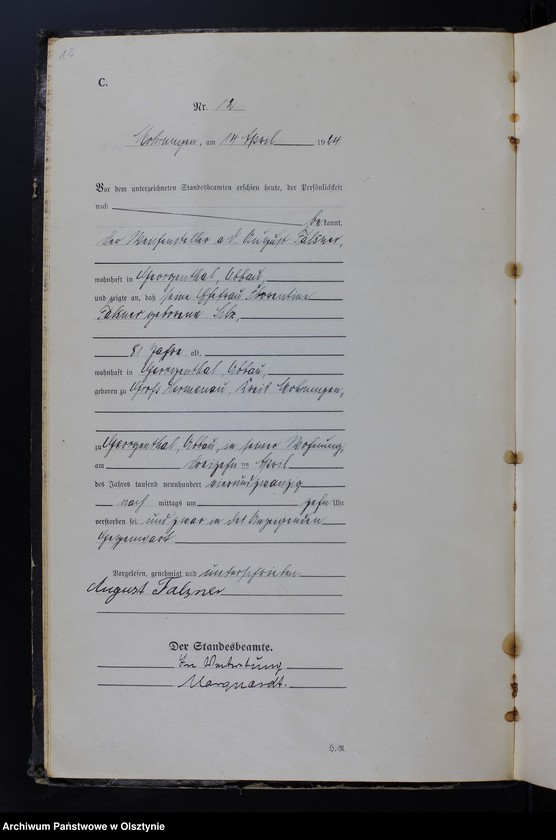 12
C.
Nr. 12
Mohrungen, am 14 April 1924
Vor dem unterzeichneten Standesbeamten erschien heute, der Persönlichkeit
nach bekannt,
der Weichensteller a. d. August Falzner,
wohnhaft in Georgenthal, Abbau,
und zeigte an, daß seine Ehefrau Florentine
Falzner geborene Silz,
81 Jahre alt,
wohnhaft in Georgenthal Abbau,
geboren zu Groß Hermenau, Kreis Mohrungen,
zu Georgenthal, Abbau, in seiner Wohnung,
am dreizehn ten April
des Jahres tausend neunhundert vierundzwanzig
nach mittags um zehn Uhr
verstorben sei und zwar in des Anzeigenden
Gegenwart
Vorgelesen, genehmigt und unterschrieben.
August Falzner
Der Standesbeamte.
In Vertretung
Marquardt.
H.-R.
Archiwum Państwowe w Olsztynie